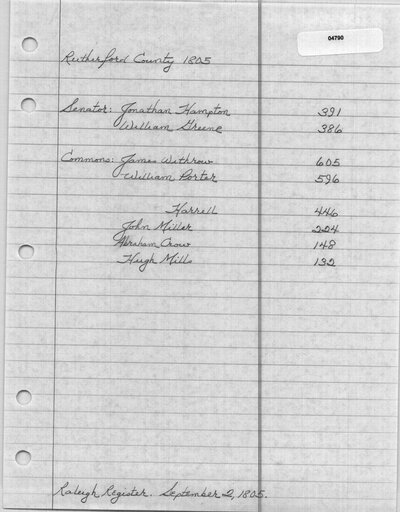 04790
Rutherford County 1805
Senator: Jonathan Hampton 391
William Greene 386
Commons: James Withrow 605
William Porter 596
Harrell 446
John Miller 224
Abraham Crow 148
Hugh Mills 132
Raleigh Register. September 2, 1805.